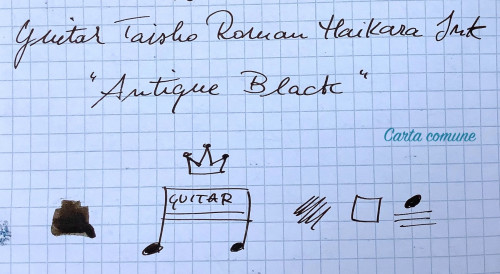 Guitar Taisho Roman Haikara Ink
"Antique Black"
Carta comune
GUITAR